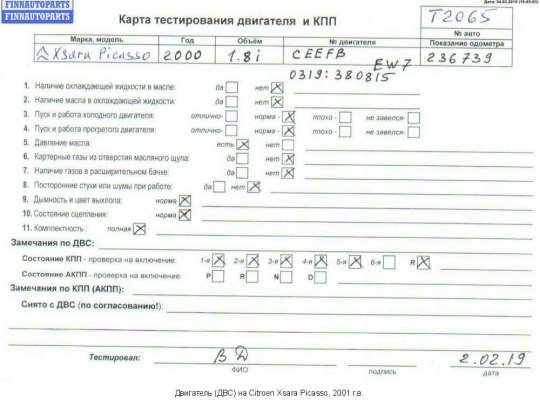 FINNAUTOPARTS
FINNAUTOPARTS
Карта тестирования двигателя и КПП
T2065
№ авто
Марка, модель Год Объём № двигателя Показание одометра
Xsara Picasso 2000 1.8i CEEFB EW7 236739
0319:380815
1. Наличие охлаждающей жидкости в масле: да нет
2. Наличие масла в охлаждающей жидкости: да нет
3. Пуск и работа холодного двигателя: отлично- норма - плохо - не завелся-
4. Пуск и работа прогретого двигателя: отлично- норма - плохо - не завелся-
5. Давление масла: есть нет
6. Картерные газы из отверстия масляного щупа: да нет
7. Наличие газов в расширительном бачке: да нет
8. Посторонние стуки или шумы при работе: да нет
9. Дымность и цвет выхлопа: норма
10. Состояние сцепления: норма
11. Комплектность : полная
Замечания по ДВС:
Состояние КПП - проверка на включение: 1-я 2-я 3-я 4-я 5-я 6-я R
Состояние АКПП - проверка на включение: P R N D
Замечания по КПП (АКПП):
Снято с ДВС (по согласованию!):
Тестировал: ВД 2.02.19
ФИО подпись дата
Двигатель (ДВС) на Citroen Xsara Picasso, 2001 г.в.